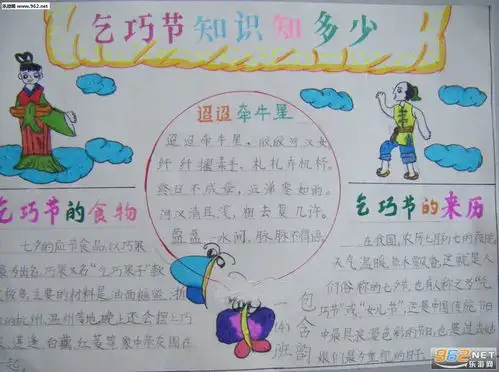 乐游网
www.962.net
乞巧节知识知多少
迢迢牵牛星
迢迢牵牛星,皎皎河汉女
纤纤擢素手,札札弄机杼。
终日不成章,泣涕零如雨。
河汉清且浅,相去复几许。
盈盈一水间,脉脉不得语。
乞巧节的食物
七夕的应节食品,以巧果
最为出名。巧果又名“乞巧果子”款
式较多。主要的材料是油面糖蜜。浙
江杭州,温州等地,晚上还会摆上巧
莲蓬 白藕,红菱等。家中亲友围在
一起
乞巧节的来历
在我国,农历七月初七的夜晚
天气温暖,草木飘香,这就是人
们俗称的七夕节,也有人称之“乞巧
节”或“女儿节”,这是中国传统节日
中最具浪漫色彩的节日,也是过去姑
娘们最为重视的日子。
一(4)班
包含韵
962.NET
乐游网